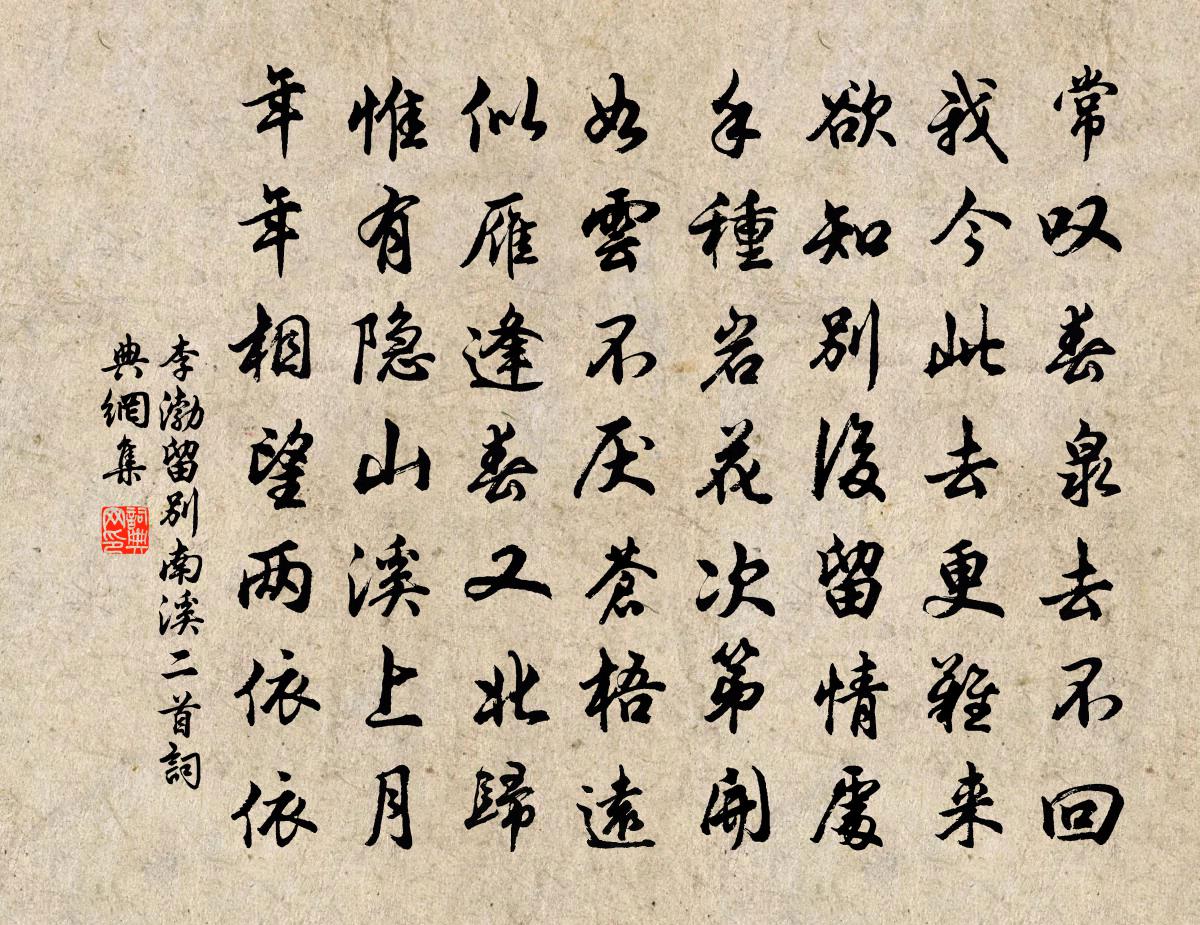 常叹春泉去不回
我今此去更難来
欲知别後留情處
手種岩花次第開
如雲不厌蒼梧遠
似雁逢春又北歸
惟有隐山溪上月
年年相望两依依
李渤留别南溪二首詞
典網集
詞典
网印